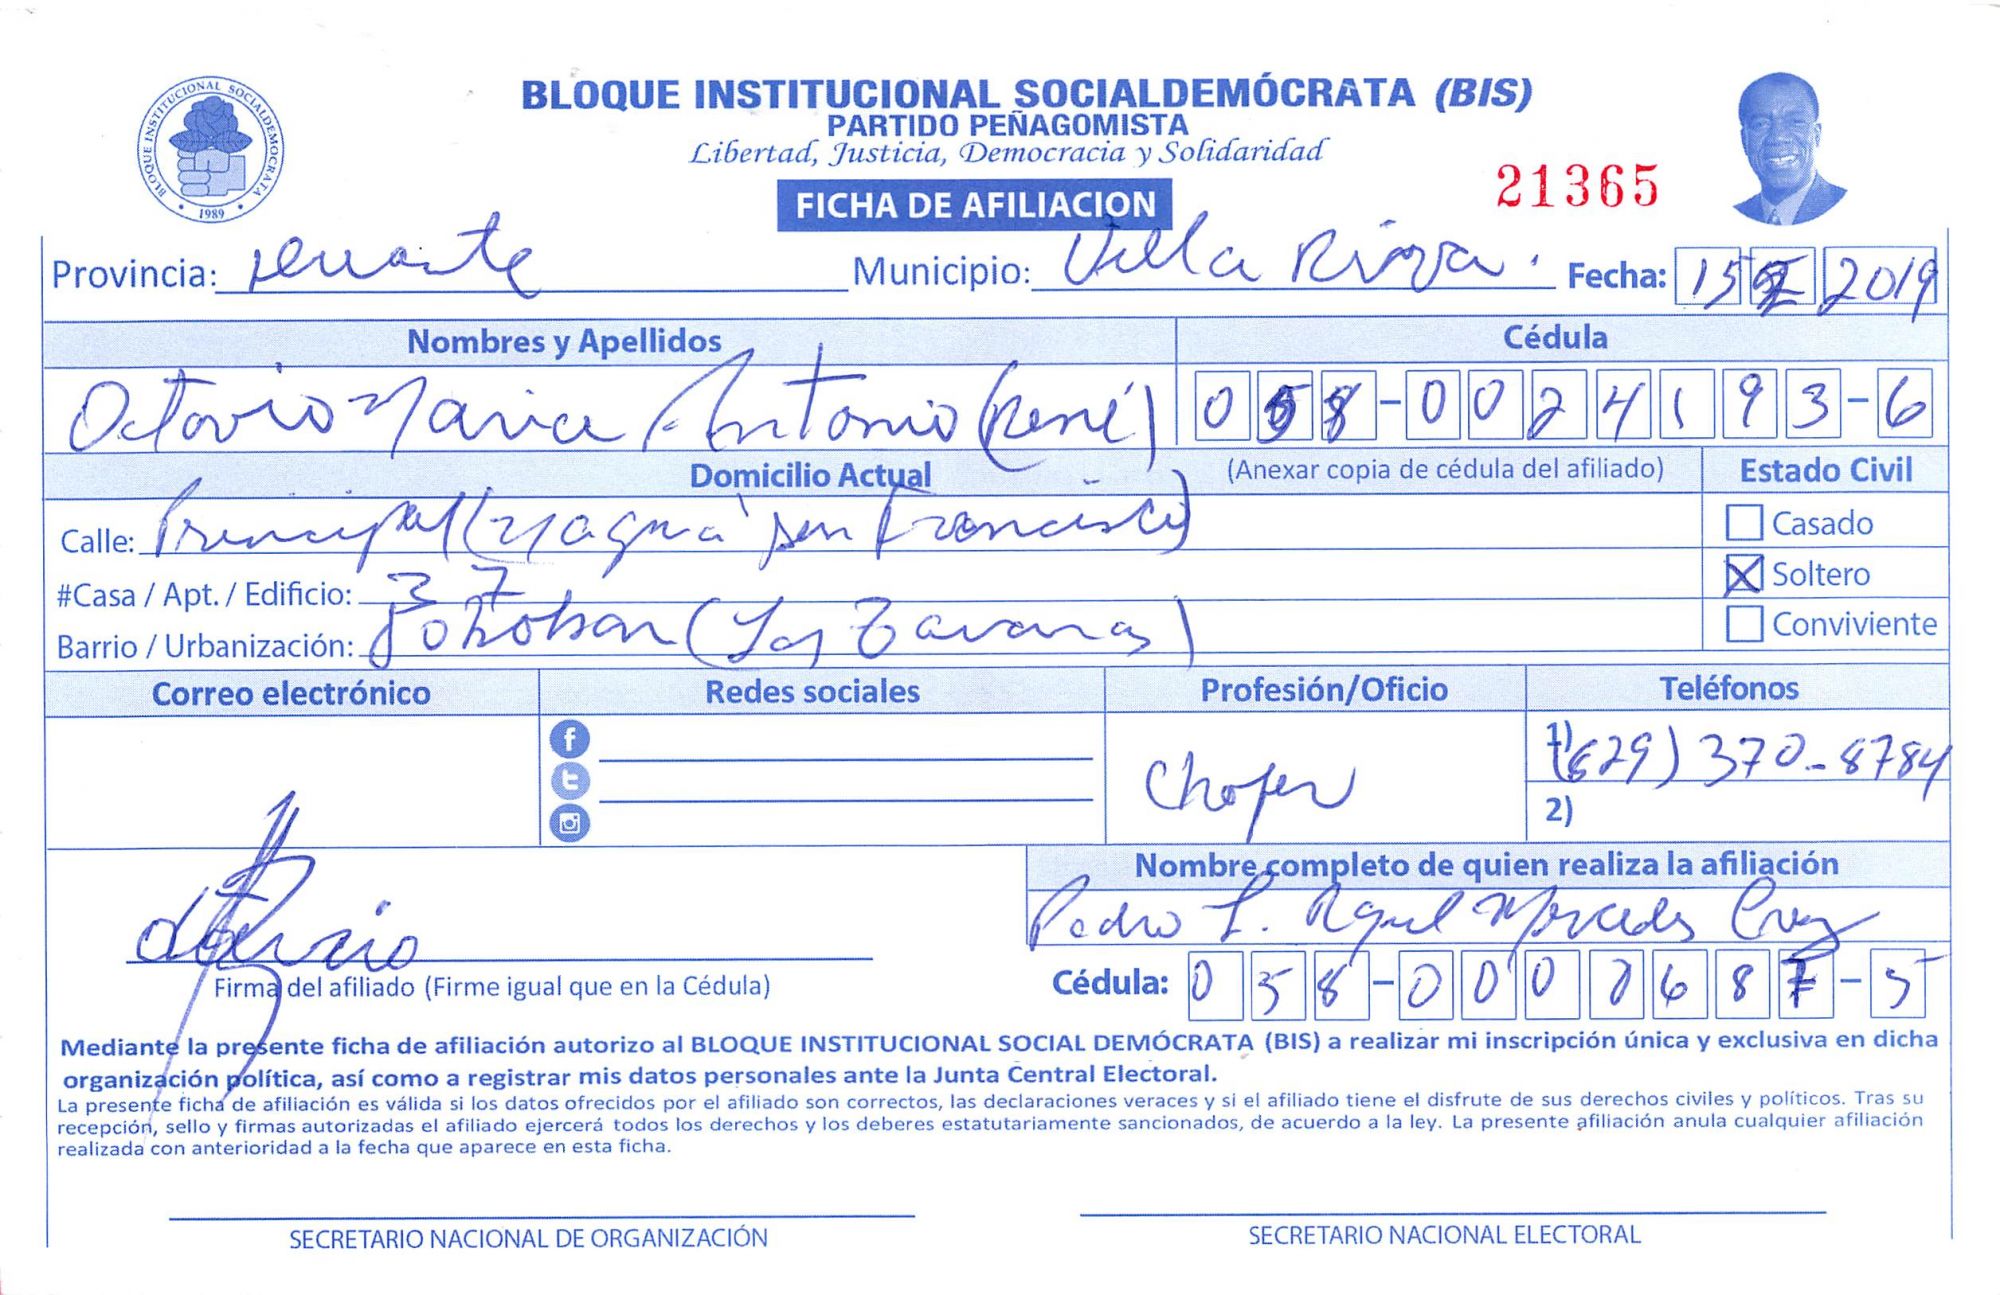 BLOQUE INSTITUCIONAL SOCIALDEMÓCRATA (BIS)
PARTIDO PEÑAGOMISTA
Libertad, Justicia, Democracia y Solidaridad
BLOQUE INSTITUCIONAL SOCIALDEMOCRATA
• 1989 •
21365
FICHA DE AFILIACION
Provincia: Duarte Municipio: Villa Riva. Fecha: 15 2019
Nombres y Apellidos Cédula
Octavio Maria Antonio (René) 058-0024193-6
Domicilio Actual (Anexar copia de cédula del afiliado) Estado Civil
Calle: Principal ( San Francisco) Casado
#Casa / Apt. / Edificio: 37 Soltero
Barrio / Urbanización: (Las Taranas) Conviviente
Correo electrónico Redes sociales Profesión/Oficio Teléfonos
Chofer 1) (829) 370-8784
2)
Nombre completo de quien realiza la afiliación
Pedro Mercedes Cruz
Firma del afiliado (Firme igual que en la Cédula) Cédula: 058-0000687-5
Mediante la presente ficha de afiliación autorizo al BLOQUE INSTITUCIONAL SOCIAL DEMÓCRATA (BIS) a realizar mi inscripción única y exclusiva en dicha
organización política, así como a registrar mis datos personales ante la Junta Central Electoral.
La presente ficha de afiliación es válida si los datos ofrecidos por el afiliado son correctos, las declaraciones veraces y si el afiliado tiene el disfrute de sus derechos civiles y políticos. Tras su
recepción, sello y firmas autorizadas el afiliado ejercerá todos los derechos y los deberes estatutariamente sancionados, de acuerdo a la ley. La presente afiliación anula cualquier afiliación
realizada con anterioridad a la fecha que aparece en esta ficha.
SECRETARIO NACIONAL DE ORGANIZACIÓN SECRETARIO NACIONAL ELECTORAL